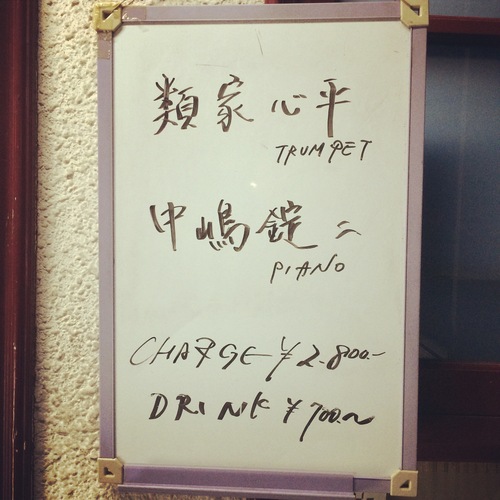 類家心平
TRUMPET
中嶋錠二
PIANO
CHARGE ¥2.800.-
DRINK ¥700.~